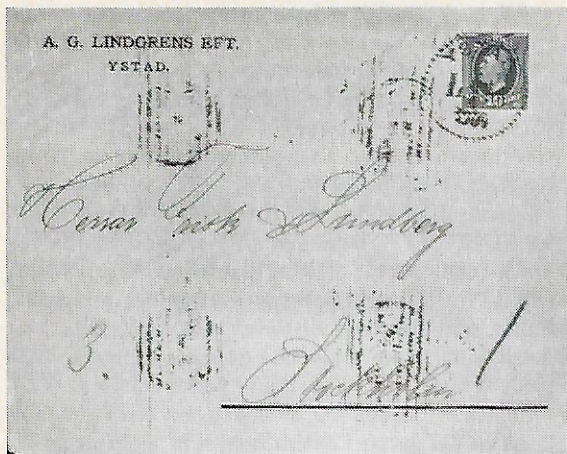 A. G. LINDGRENS EFT.
YSTAD.
Herrar Frisk & Lundberg
3.
Stockholm